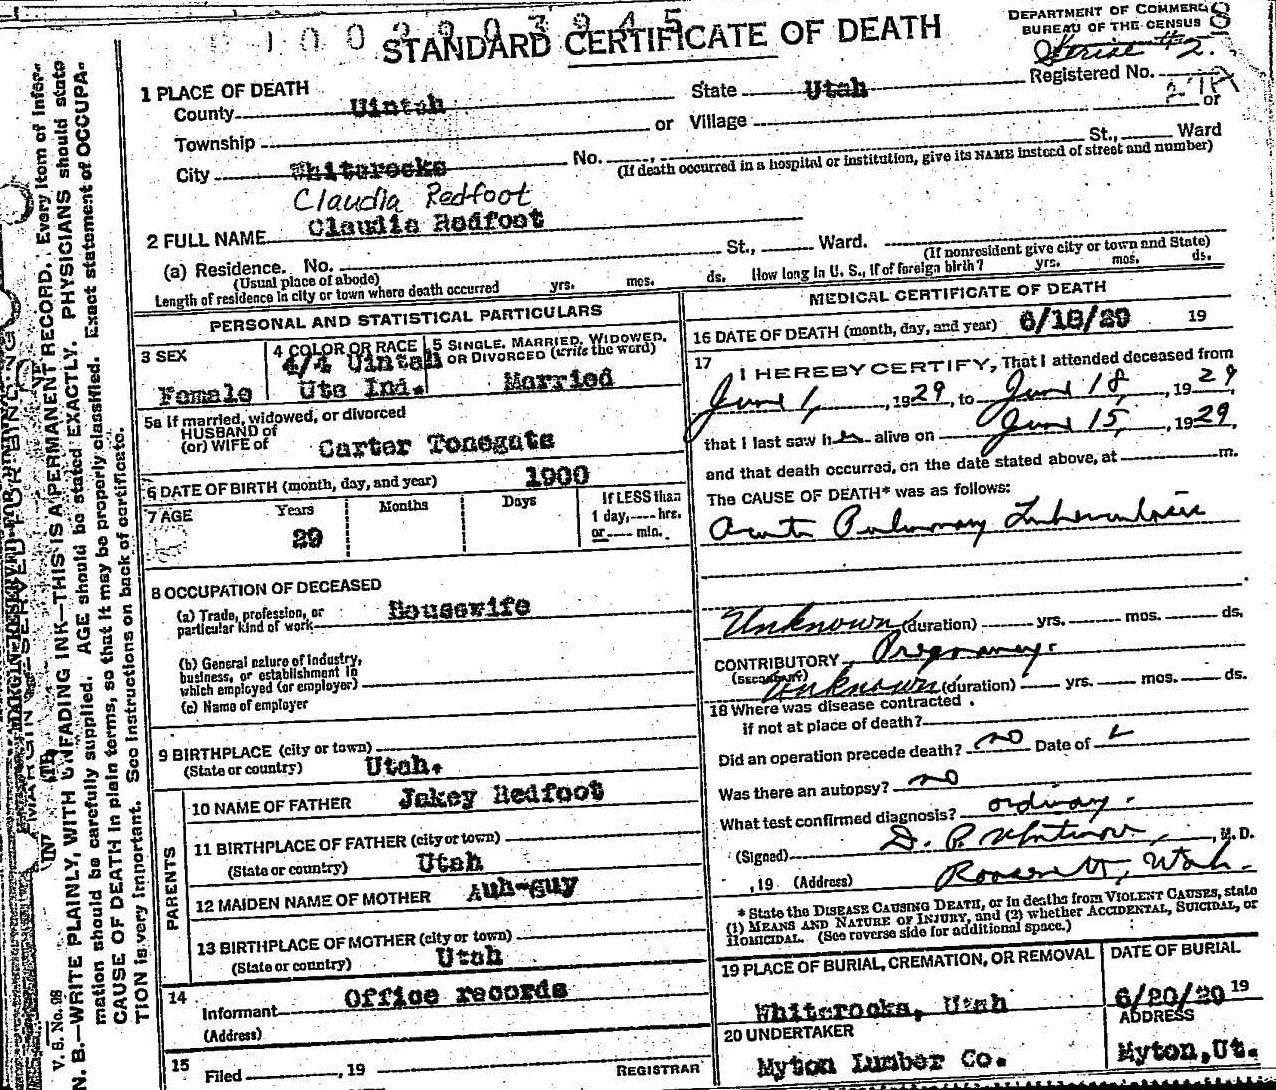 1002003945
STANDARD CERTIFICATE OF DEATH
DEPARTMENT OF COMMERCE
BUREAU OF THE CENSUS
1 PLACE OF DEATH
County Uintah State Utah Registered No.
Township or Village or
City Whiterocks No. St., Ward
(If death occurred in a hospital or institution, give its NAME instead of street and number)
Claudia Redfoot
2 FULL NAME Claudia Redfoot
(a) Residence. No. St., Ward.
(Usual place of abode) (If nonresident give city or town and State)
Length of residence in city or town where death occurred yrs. mos. ds. How long in U. S., if of foreign birth? yrs. mos. ds.
PERSONAL AND STATISTICAL PARTICULARS
3 SEX 4 COLOR OR RACE 5 SINGLE, MARRIED, WIDOWED, OR DIVORCED (write the word)
Female 4/4 Uintah Ute Ind. Married
5a If married, widowed, or divorced
HUSBAND of
(or) WIFE of Carter Tonegats
6 DATE OF BIRTH (month, day, and year) 1900
7 AGE Years Months Days If LESS than
1 day, hrs.
29 or min.
8 OCCUPATION OF DECEASED
(a) Trade, profession, or
particular kind of work Housewife
(b) General nature of industry,
business, or establishment in
which employed (or employer)
(c) Name of employer
9 BIRTHPLACE (city or town)
(State or country) Utah.
PARENTS
10 NAME OF FATHER Jakey Redfoot
11 BIRTHPLACE OF FATHER (city or town)
(State or country) Utah
12 MAIDEN NAME OF MOTHER Auh-Guy
13 BIRTHPLACE OF MOTHER (city or town)
(State or country) Utah
14
Informant Office records
(Address)
15 Filed , 19 REGISTRAR
MEDICAL CERTIFICATE OF DEATH
16 DATE OF DEATH (month, day, and year) 6/18/29 19
17 I HEREBY CERTIFY, That I attended deceased from
June 1, , 1929, to June 18, , 1929
that I last saw her alive on June 15, , 1929,
and that death occurred, on the date stated above, at m.
The CAUSE OF DEATH* was as follows:
Acute Pulmonary Tuberculosis
Unknown (duration) yrs. mos. ds.
CONTRIBUTORY Pregnancy.
(SECONDARY)
Unknown (duration) yrs. mos. ds.
18 Where was disease contracted
if not at place of death?
Did an operation precede death? no Date of
Was there an autopsy? no
What test confirmed diagnosis? ordinary.
(Signed) D. P. , M. D.
, 19 (Address) Roosevelt, Utah.
* State the DISEASE CAUSING DEATH, or in deaths from VIOLENT CAUSES, state
(1) MEANS AND NATURE OF INJURY, and (2) whether ACCIDENTAL, SUICIDAL, or
HOMICIDAL. (See reverse side for additional space.)
19 PLACE OF BURIAL, CREMATION, OR REMOVAL DATE OF BURIAL
Whiterocks, Utah 6/20/29 19
20 UNDERTAKER ADDRESS
Myton Lumber Co. Myton, Ut.
V. B. No. 98
N. B.—WRITE PLAINLY, WITH UNFADING INK—THIS IS A PERMANENT RECORD. Every item of infor-
mation should be carefully supplied. AGE should be stated EXACTLY. PHYSICIANS should state
CAUSE OF DEATH in plain terms, so that it may be properly classified. Exact statement of OCCUPA-
TION is very important. See instructions on back of certificate.
MARGIN RESERVED FOR BINDING